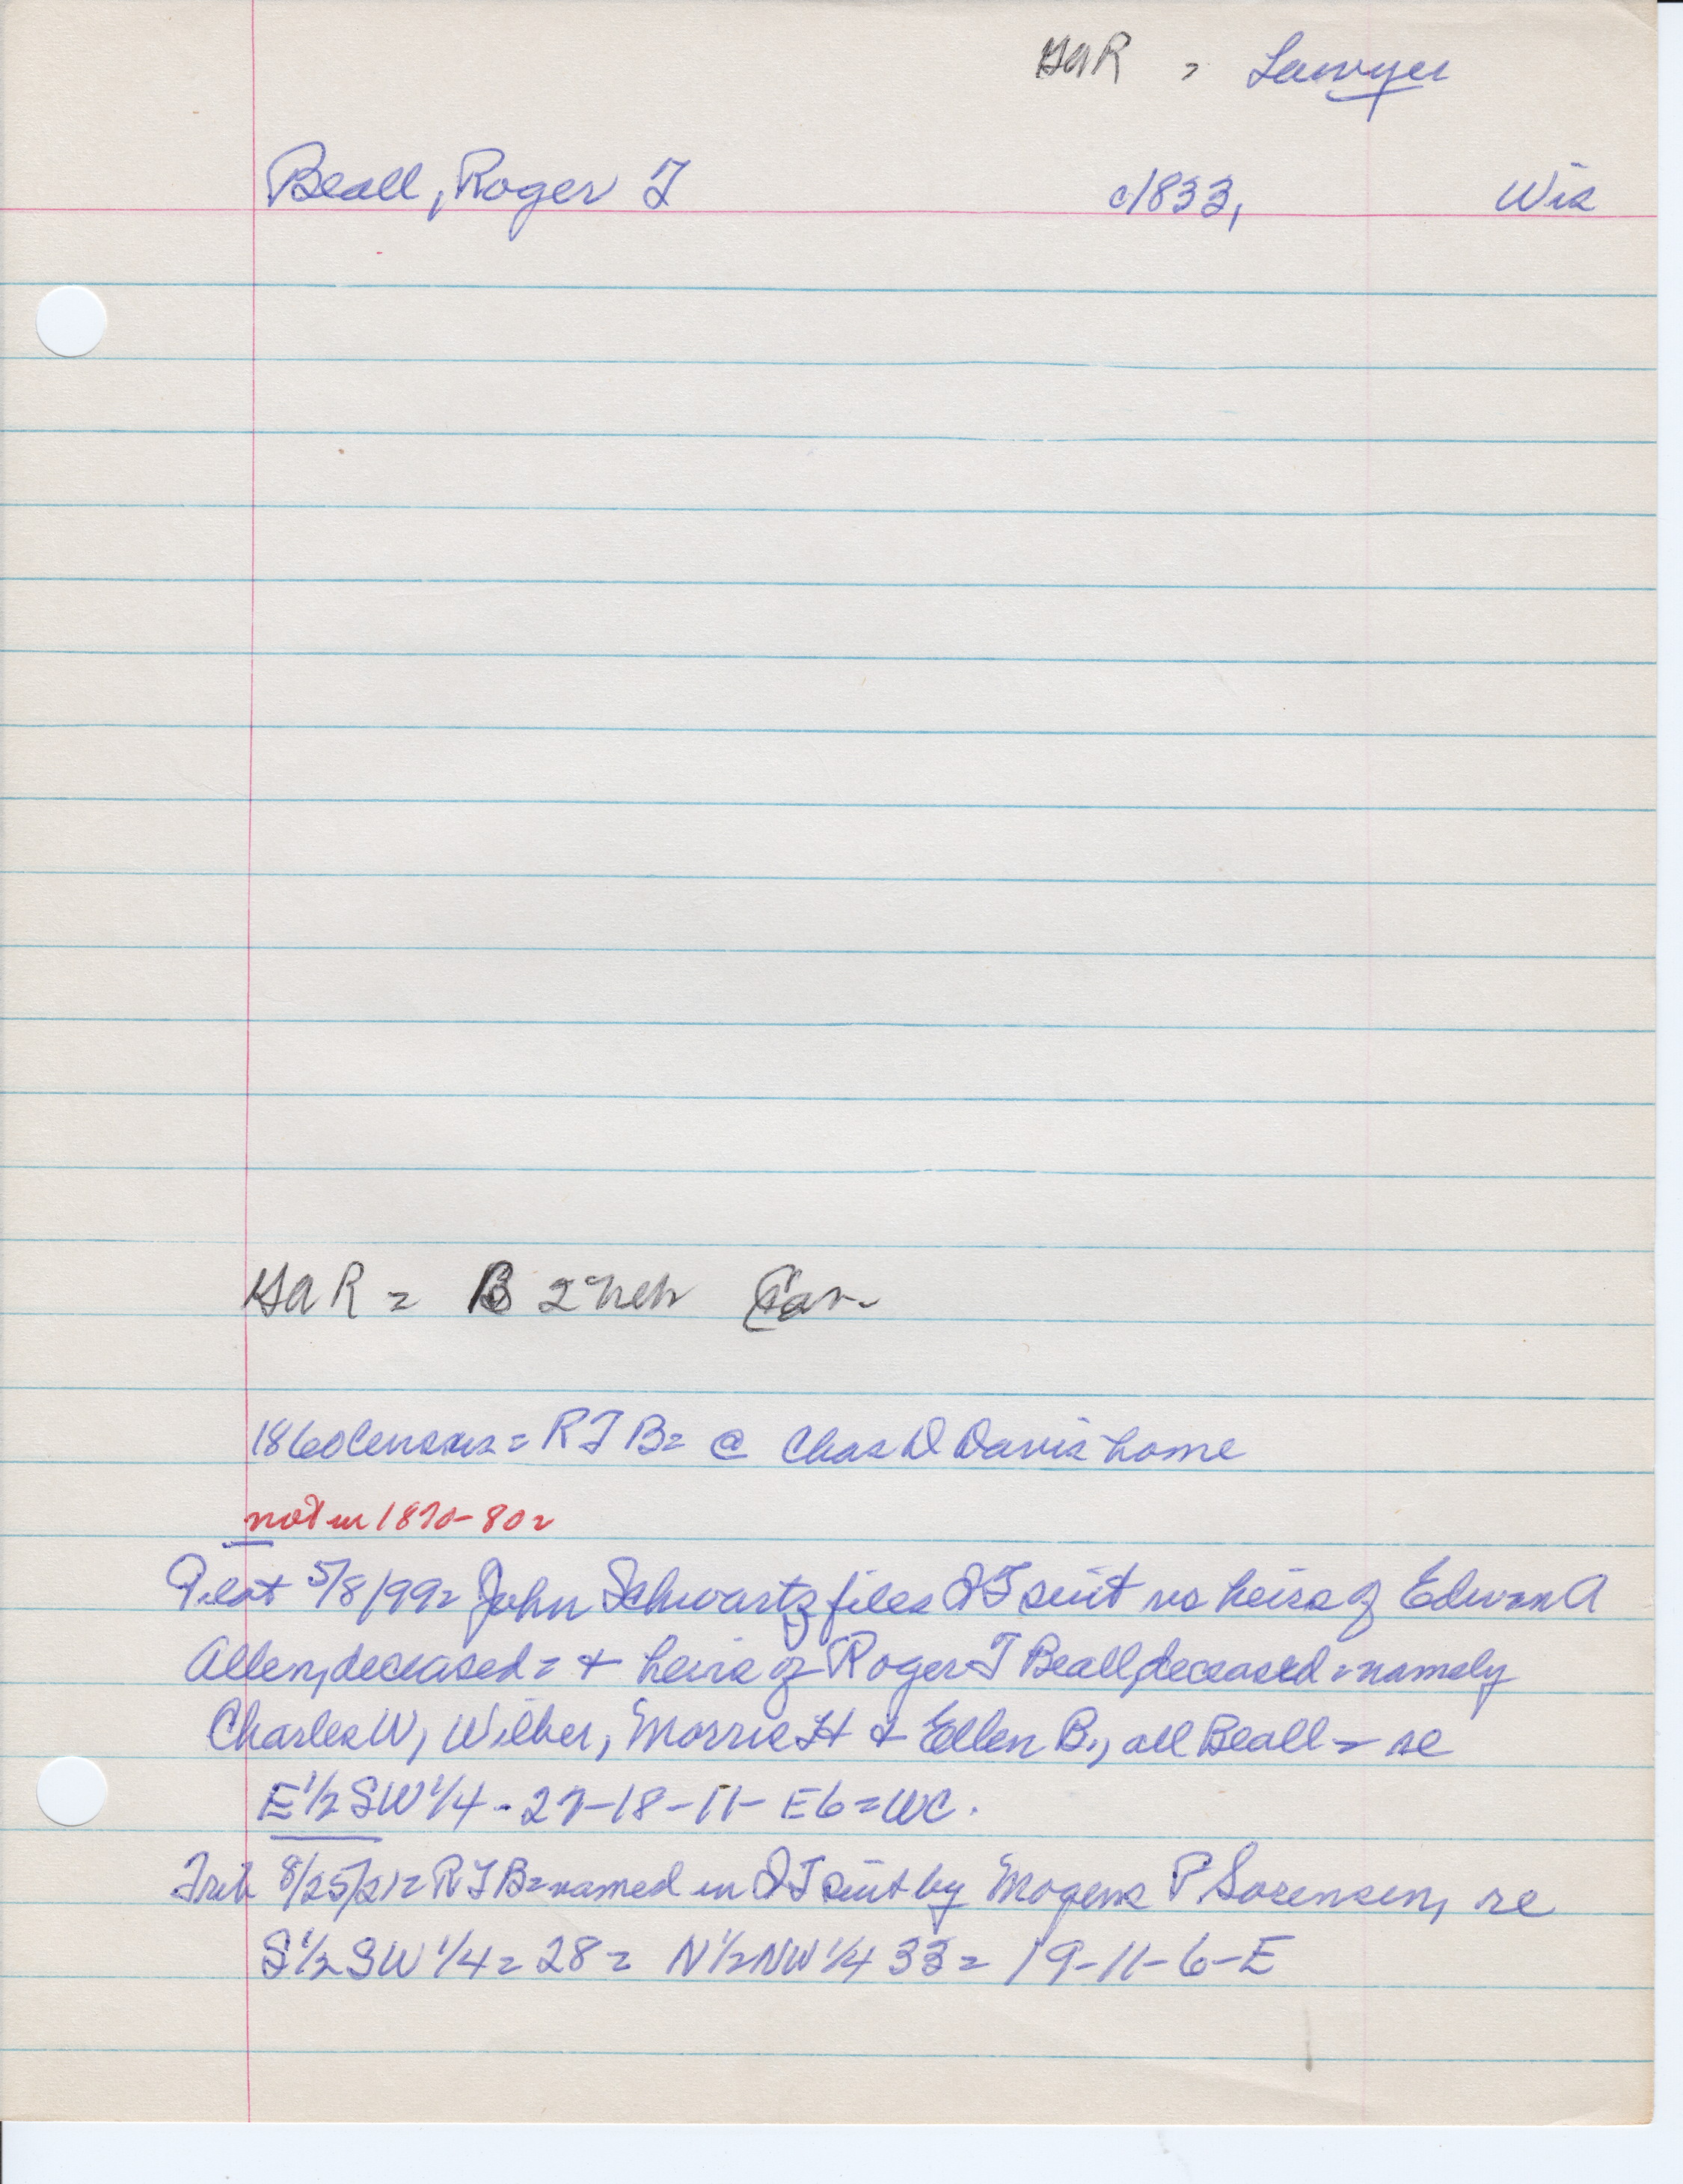 GAR = Lawyer
Beall, Roger T c1833, Wis
GAR = B 2 Neb Cav.
1860 Census = R T B = @ Chas D Davis home
not in 1870-80 =
Pilot 5/8/99 = John Schwartz files QT suit vs heirs of Edwin A
Allen, deceased = + heirs of Roger T Beall, deceased = namely
Charles W, Wilber, Morris H + Ellen B., all Beall = re
E 1/2 SW 1/4 - 27-18-11- E6 = WC.
Trib 8/25/21 = R T B = named in QT suit by Mogens P Sorensen, re
S 1/2 SW 1/4 = 28 = N 1/2 NW 1/4 33 = 19-11-6-E